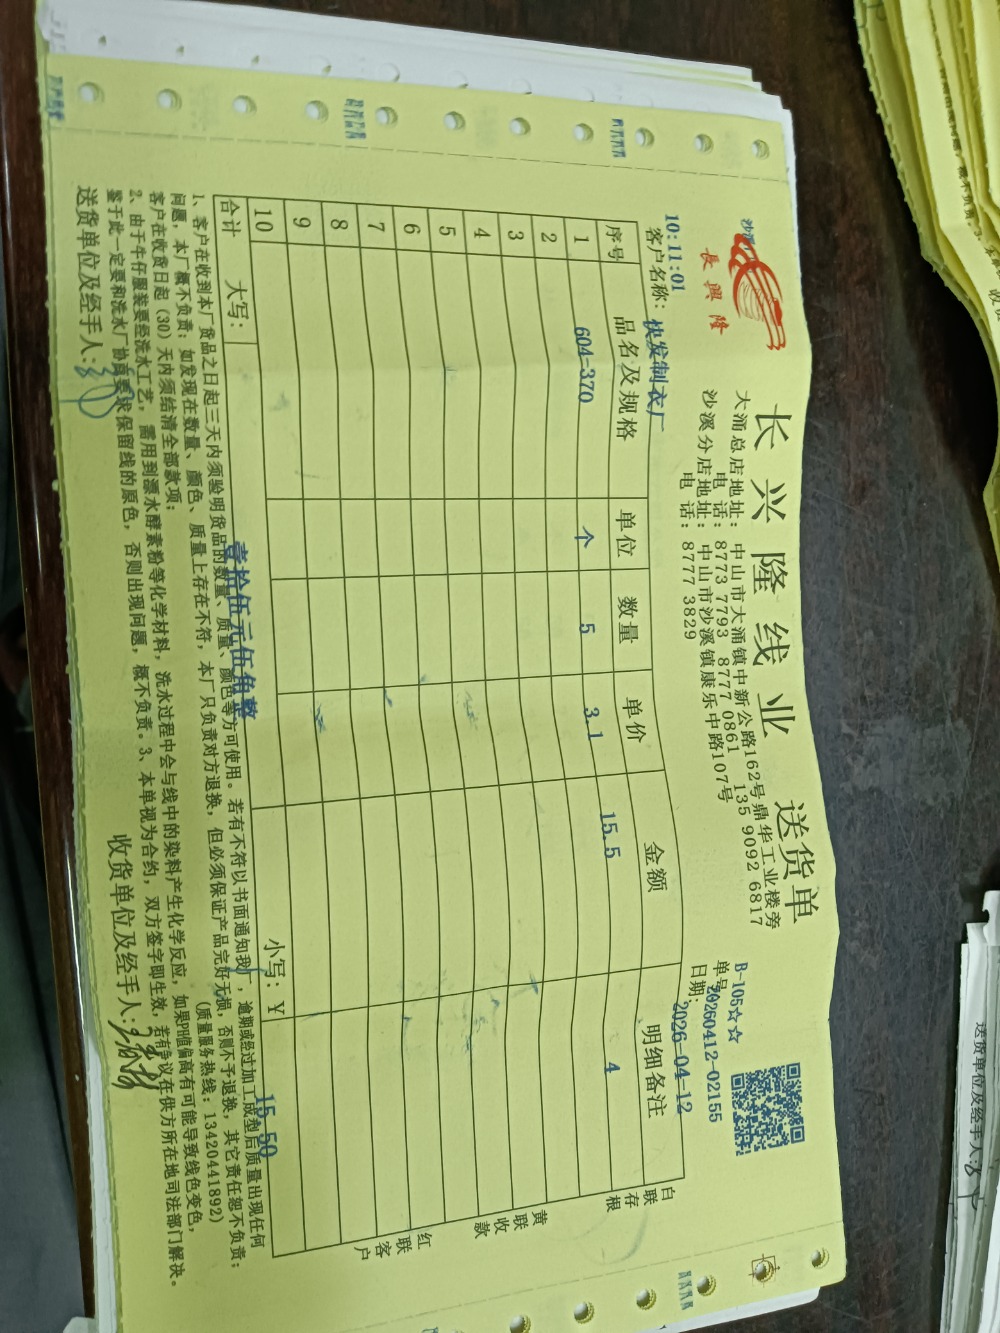 长兴隆线业 送货单
長興隆
大涌总店地址：中山市大涌镇中新公路162号鼎华工业楼旁
电 话：8773 7793 8777 0861 135 9092 6817
沙溪分店地址：中山市沙溪镇康乐中路107号
电 话：8777 3829
B-105☆☆
单号：20260412-02155
日期：2026-04-12
10:11:01
客户名称：快发制衣厂
序号 品名及规格 单位 数量 单价 金额 明细备注
1 604-370 个 5 3.1 15.5 4
2
3
4
5
6
7
8
9
10
合计 大写：壹拾伍元伍角整 小写：￥15.50
白联存根
黄联收款
红联客户
1、客户在收到本厂货品之日起三天内须验明货品的数量、质量、颜色等方可使用。若有不符以书面通知我厂，逾期或经过加工成型后质量出现任何
问题，本厂概不负责；如发现在数量、颜色、质量上存在不符，本厂只负责对方退换，但必须保证产品完好无损，否则不予退换，其它责任恕不负责；
客户在收货日起(30)天内须结清全部款项； (质量服务热线：13420441892)
2、由于牛仔服装要经洗水工艺，需用到漂水酵素粉等化学材料，洗水过程中会与线中的染料产生化学反应，如果PH值偏高有可能导致线色变色，
鉴于此一定要和洗水厂协商要求保留线的原色，否则出现问题，概不负责。3、本单视为合约，双方签字即生效，若有争议在供方所在地司法部门解决。
送货单位及经手人： 收货单位及经手人：
送货单位及经手人：